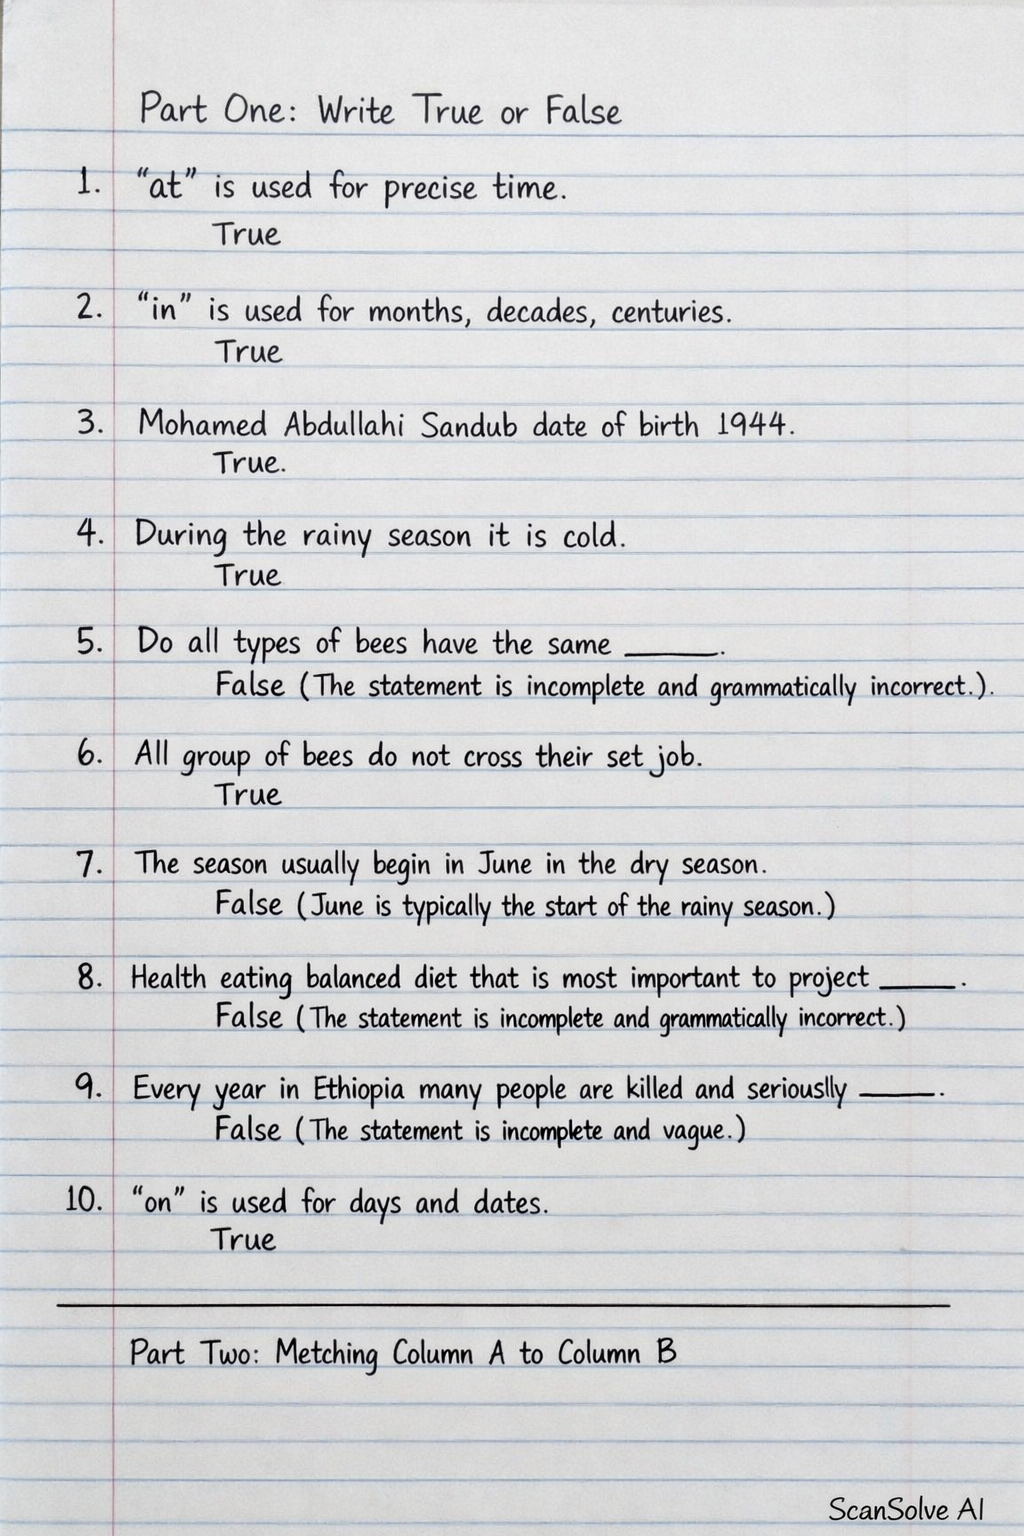 Part One: Write True or False
1. "at" is used for precise time.
True
2. "in" is used for months, decades, centuries.
True
3. Mohamed Abdullahi Sandub date of birth 1944.
True.
4. During the rainy season it is cold.
True
5. Do all types of bees have the same ______.
False (The statement is incomplete and grammatically incorrect.).
6. All group of bees do not cross their set job.
True
7. The season usually begin in June in the dry season.
False (June is typically the start of the rainy season.)
8. Health eating balanced diet that is most important to project _____.
False (The statement is incomplete and grammatically incorrect.)
9. Every year in Ethiopia many people are killed and seriouslly _____.
False (The statement is incomplete and vague.)
10. "on" is used for days and dates.
True
Part Two: Metching Column A to Column B
ScanSolve AI